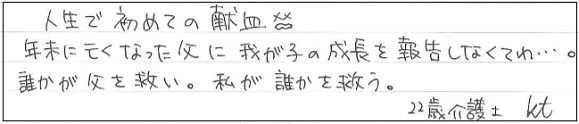 人生で初めての献血
年末に亡くなった父に我が子の成長を報告しなくてわ…。
誰かが父を救い。私が誰かを救う。
22歳介護士 kt